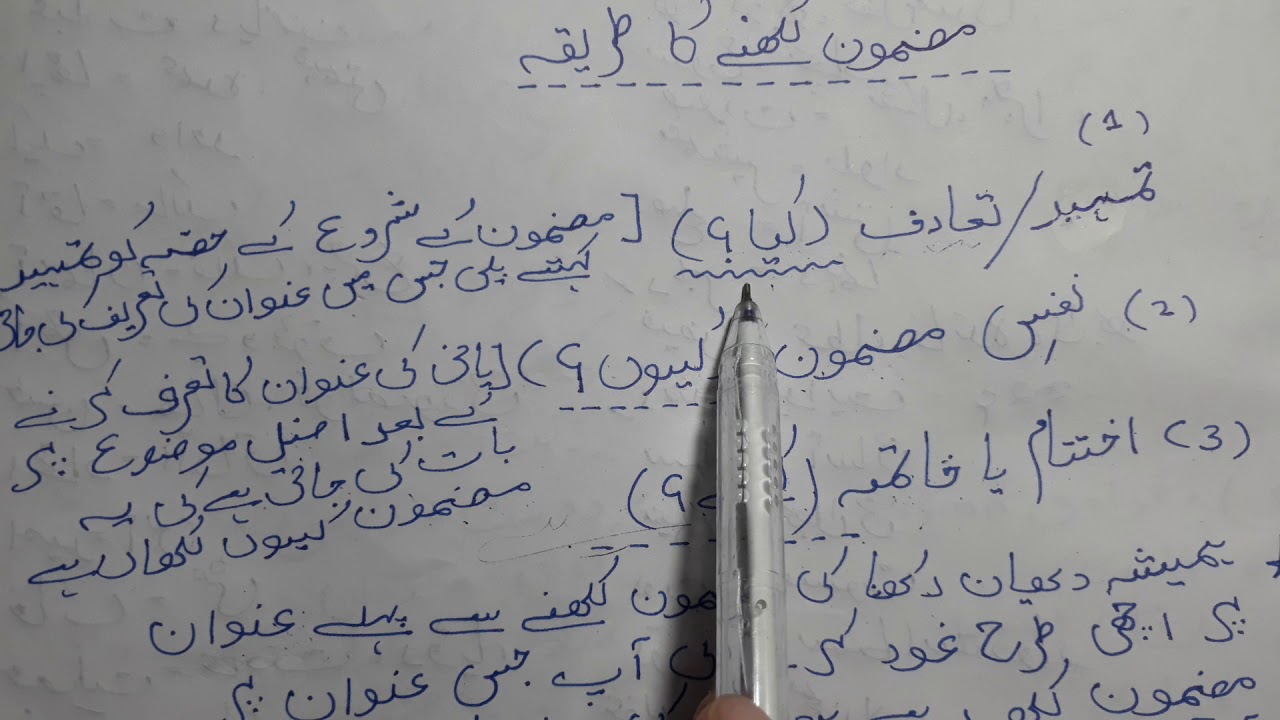 مضمون لکھنے کا طریقہ
(1)
تمہید/تعارف (کیا؟) [مضمون کے شروع کے حصّہ کو تمہید
کہتے ہیں جس میں عنوان کی تعریف کی جاتی
(2) نفسِ مضمون (کیوں؟) [یانی کی عنوان کا تعرف کرنے
کے بعد اصل موضوع پر
بات کی جاتی ہے کی یہ
مضمون کیوں لکھا ہے
(3) اختتام یا خاتمہ (
ہمیشہ دھیان رکھنا کی لکھنے سے پہلے عنوان
پر اچھی طرح غور کر آپ جس عنوان پر
مضمون